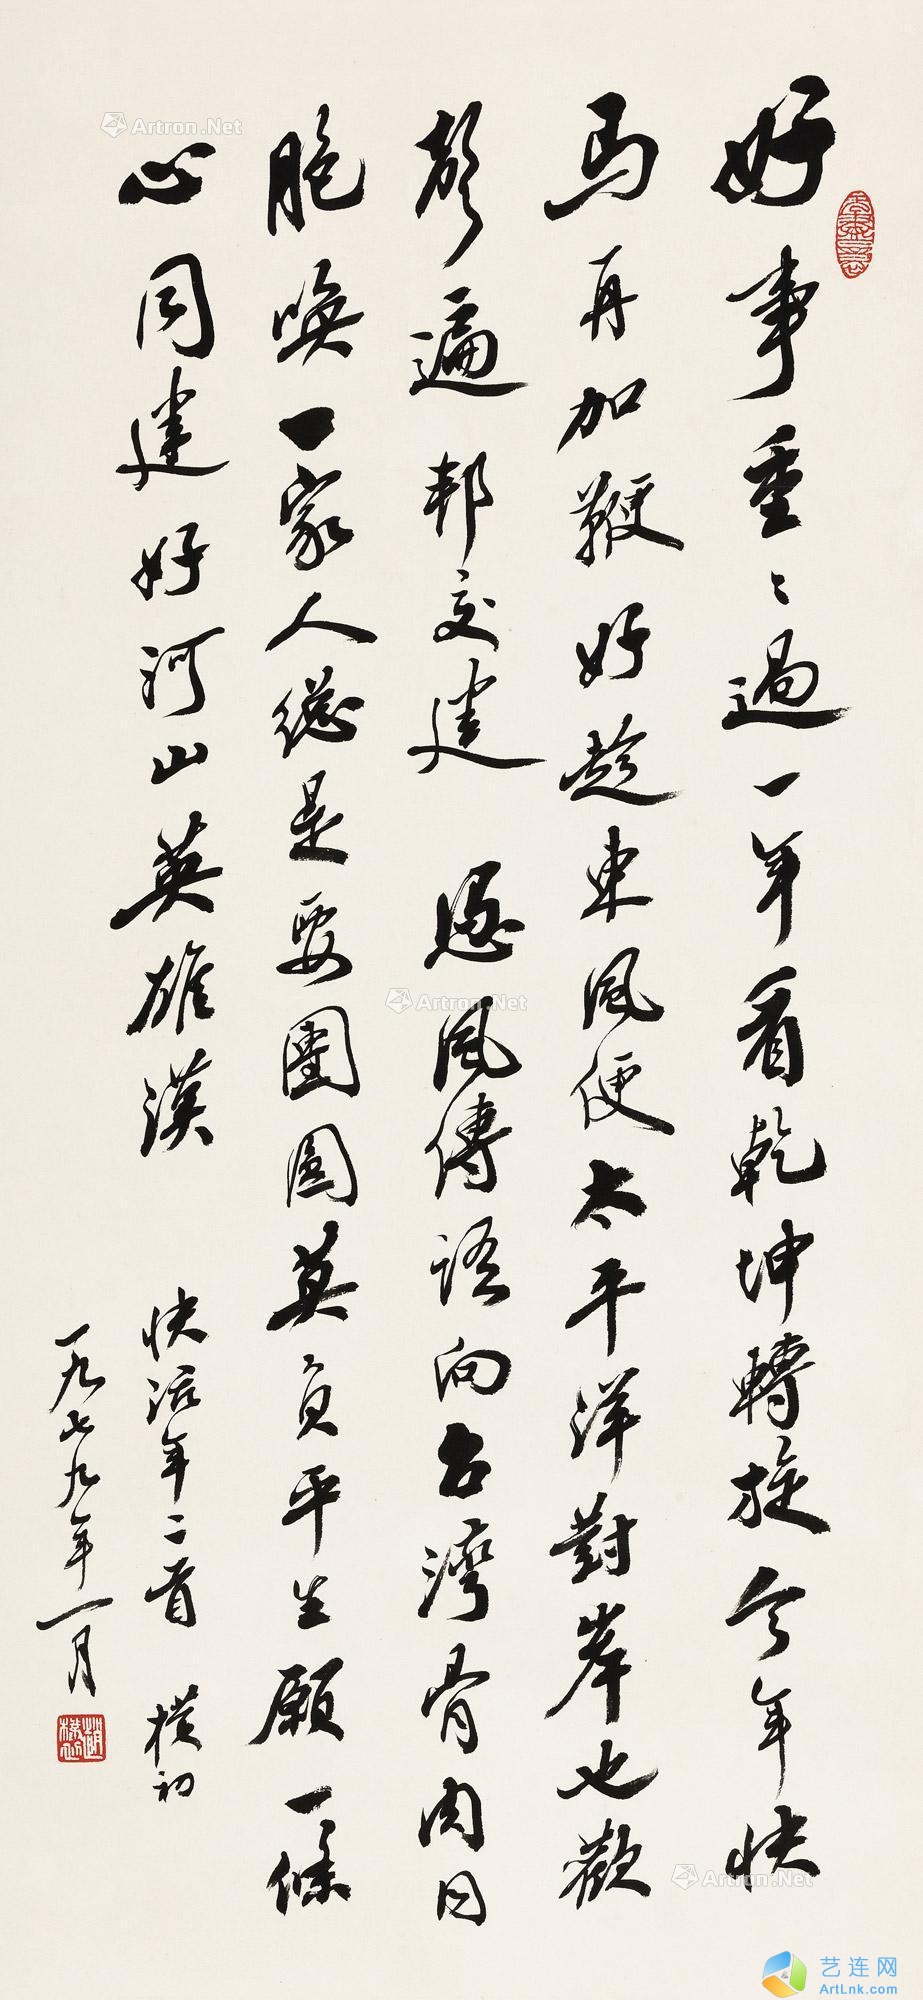 好事重〻過一年看乾坤轉旋今年快
馬再加鞭好趁東风便太平洋對岸也歡
顏遍邦交建 憑风傳語向台灣骨肉同
胞喚一家人總是要團圆莫負平生願一條
心同建好河山英雄漢
快活年二首 樸初
一九七九年一月
趙樸初
Artron.Net
Artron.Net
Artron.Net
艺连网
ArtLnk.com